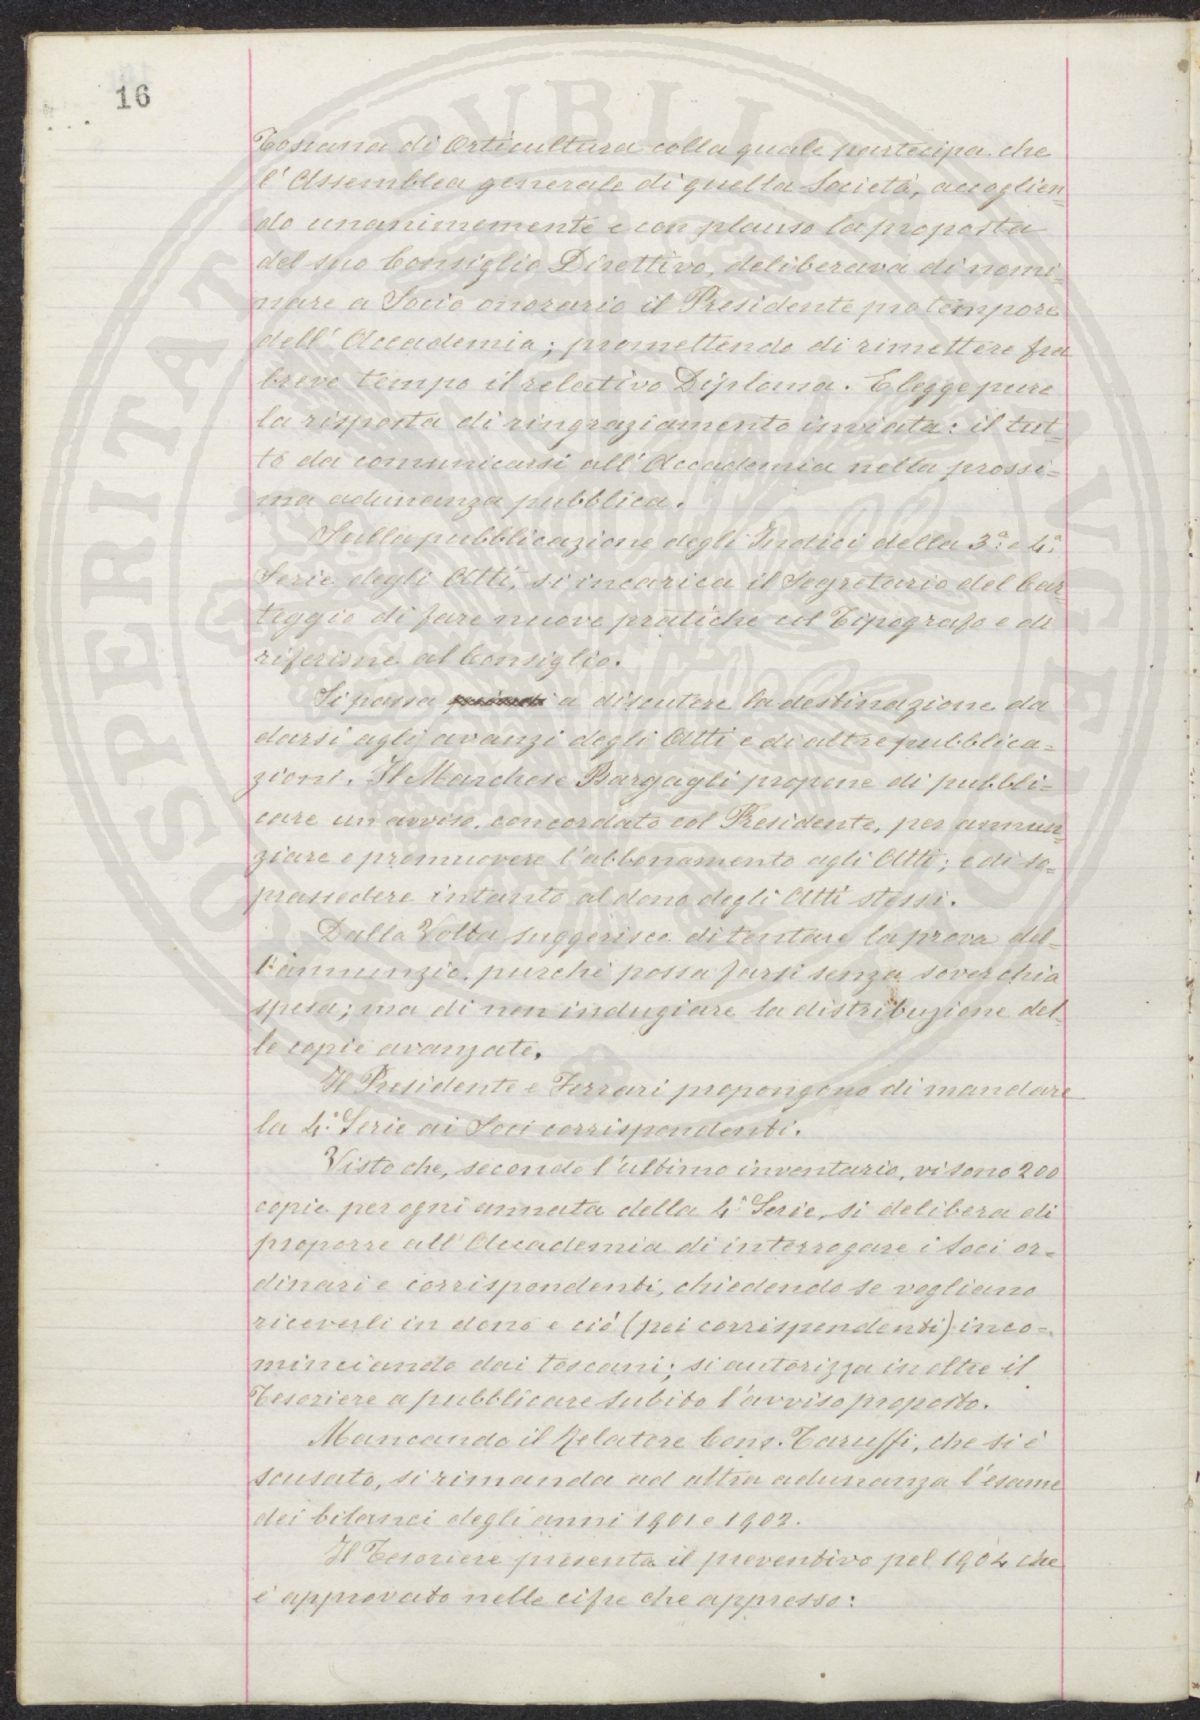 16
Toscana di Orticultura colla quale partecipa che
l'Assemblea generale di quella Società, accoglien=
do unanimemente e con plauso la proposta
del suo Consiglio Direttivo, deliberava di nomi=
nare a Socio onorario il Presidente pro tempore
dell'Accademia; promettendo di rimettere fra
breve tempo il relativo Diploma. E legge pure
la risposta di ringraziamento inviata: il tut=
to da comunicarsi all'Accademia nella prossi=
ma adunanza pubblica.
Sulla pubblicazione degli Indici della 3ª e 4ª
Serie degli Atti, si incarica il Segretario del Car=
teggio di fare nuove pratiche col Tipografo e di
riferirne al Consiglio.
Si passa quindi a discutere la destinazione da
darsi agli avanzi degli Atti e di altre pubblica=
zioni. Il Marchese Bargagli propone di pubbli=
care un avviso, concordato col Presidente, per annun=
ziare e promuovere l'abbonamento agli Atti; e di so=
prassedere intanto al dono degli Atti stessi.
Dalla Volta suggerisce di tentare la prova del=
l'annunzio, purchè possa farsi senza soverchia
spesa; ma di non indugiare la distribuzione del=
le copie avanzate.
Il Presidente e Ferrari propongono di mandare
la 4ª Serie ai Soci corrispondenti.
Visto che, secondo l'ultimo inventario, vi sono 200
copie per ogni annata della 4ª Serie, si delibera di
proporre all'Accademia di interrogare i Soci or=
dinari e corrispondenti, chiedendo se vogliano
riceverli in dono e ciò (pei corrispondenti) inco=
minciando dai toscani; si autorizza inoltre il
Tesoriere a pubblicare subito l'avviso proposto.
Mancando il Relatore Cons. Taruffi, che si è
scusato, si rimanda ad altra adunanza l'esame
dei bilanci degli anni 1901 e 1902.
Il Tesoriere presenta il preventivo pel 1904 che
è approvato nelle cifre che appresso:
PVBLICAE
PROSPERITATI AVGENDAE